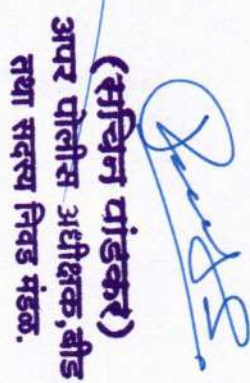 (सचिन पांडकर)
अपर पोलीस अधीक्षक,बीड
तथा सदस्य निवड मंडळ.